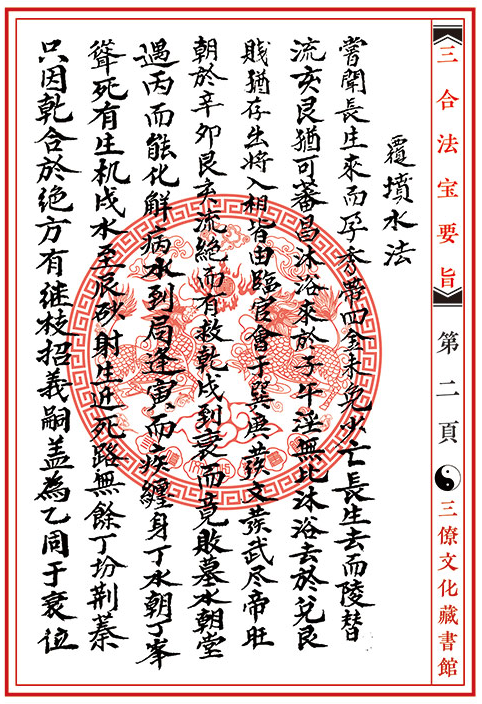 三合法宝要旨 第二頁 三僚文化藏書館
覆墳水法
嘗聞長生來而孕秀帶四金未免少亡長生去而陵替
流亥艮猶可審昌沐浴來於子午淫無比沐浴去於兌艮
賎猶存出將入相皆由臨官會于巽庚蕟文蕟武尽帝旺
朝於辛卯艮亥流絶而有救乾戌到衰而竟敗墓水朝堂
遇丙而能化解病水到局逢寅而疾纏身丁水朝丁峯
聳死有生机戌水至辰砂射生近死路無餘丁坊荆蓁
只因乾合於绝方有继枝招義嗣盖為乙同于衰位